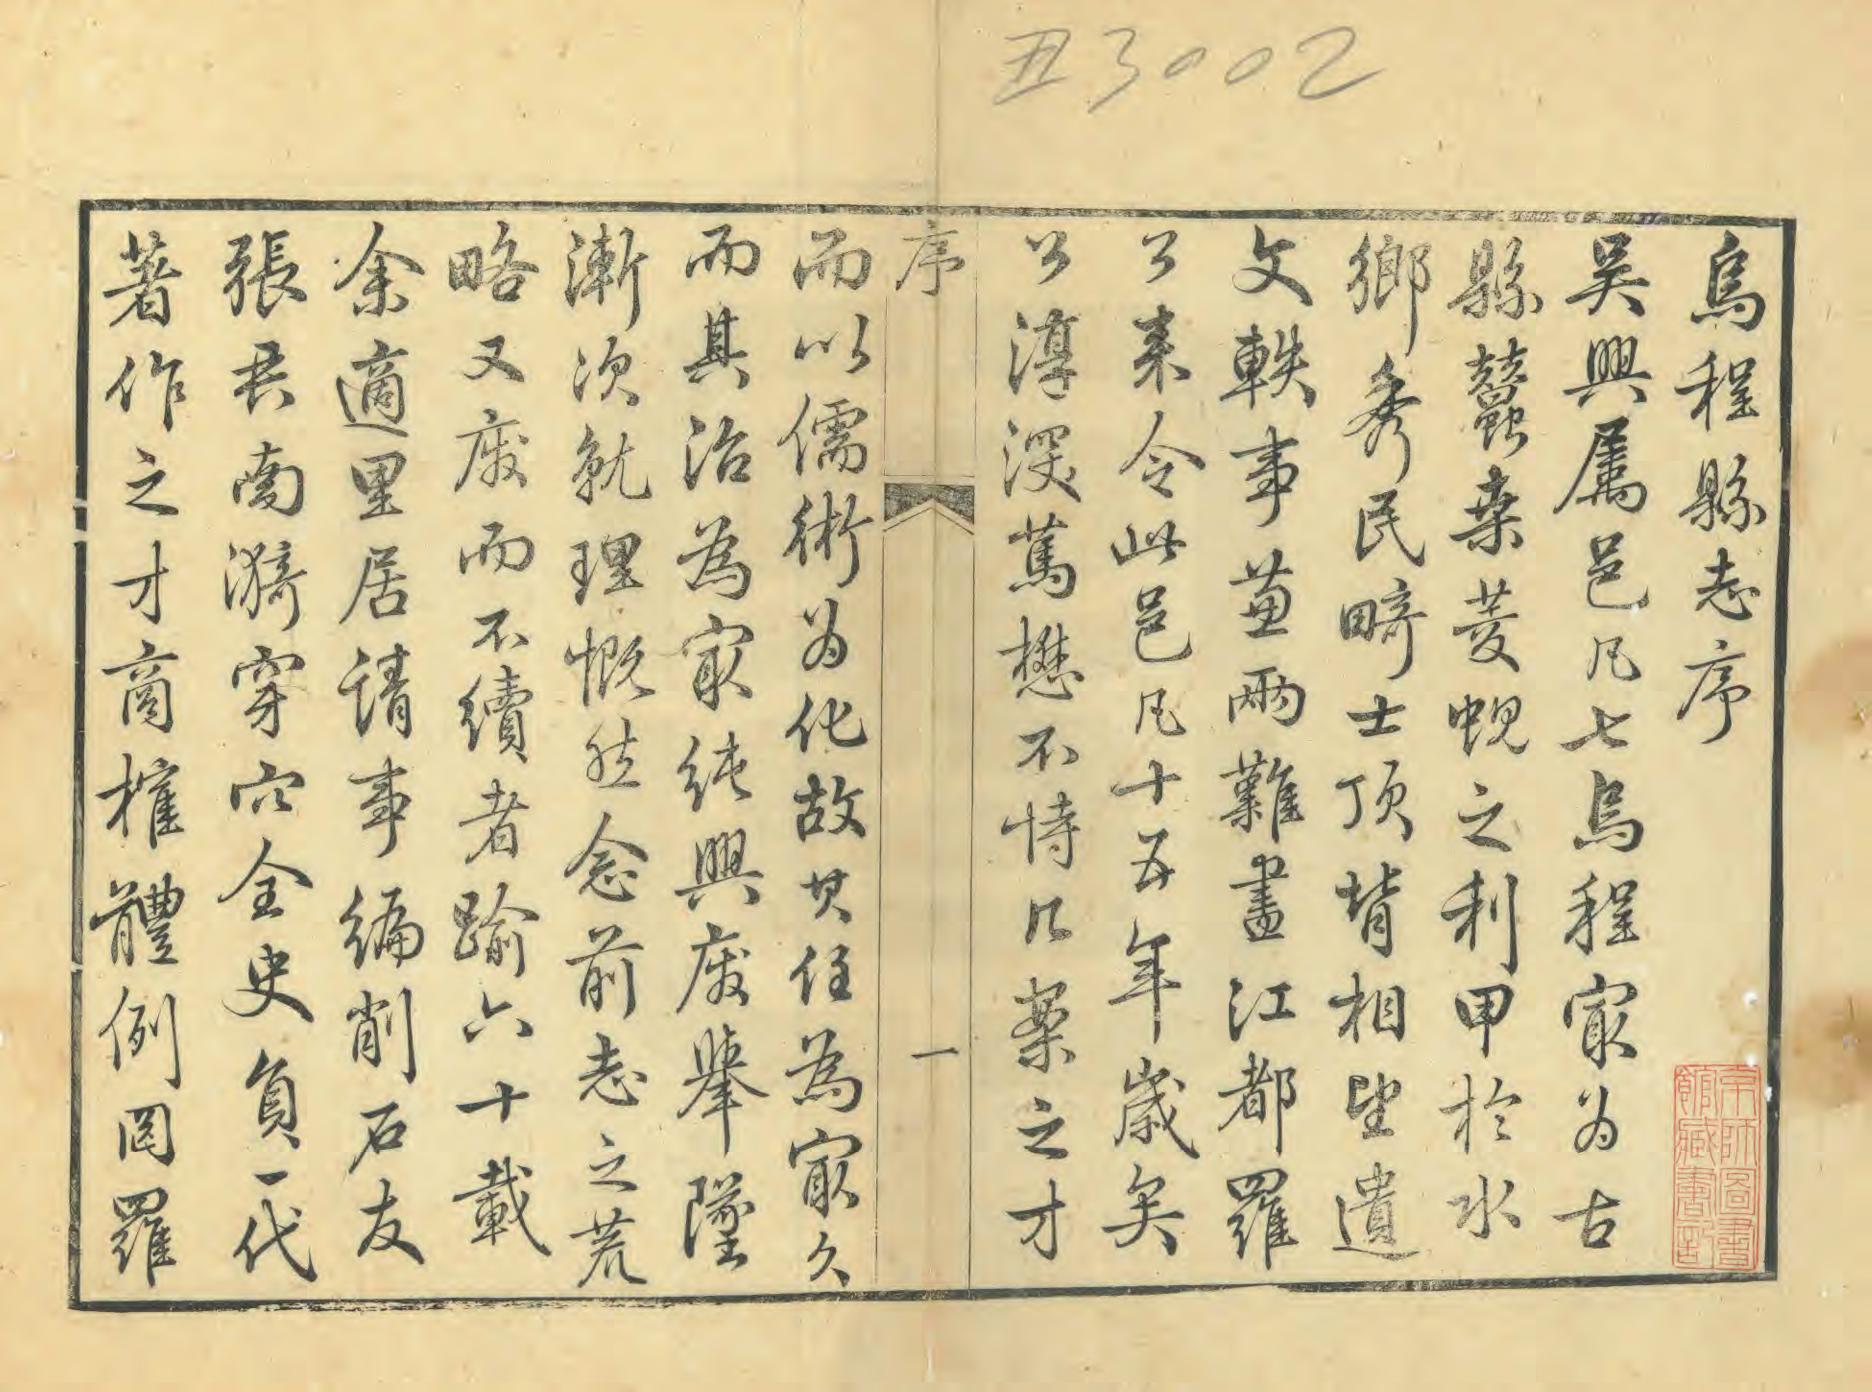 丑3002
烏程縣志序
吳興屬邑凡七烏程㝡为古
縣蠶桒菱蜆之利甲於水
鄉秀民畸士頂背相望遺
文軼事蓋兩難盡江都羅
公来令此邑凡十五年歲矣
公淳深篤懋不恃几案之才
序
一
而以儒術为化故其任為㝡久
而其治為㝡純興廢舉墜
漸次就理慨然念前志之荒
略又廢而不續者踰六十載
余適里居請事編削石友
張君南漪穿穴全史負一代
著作之才商榷體例罔羅
京師圖書
館藏書記